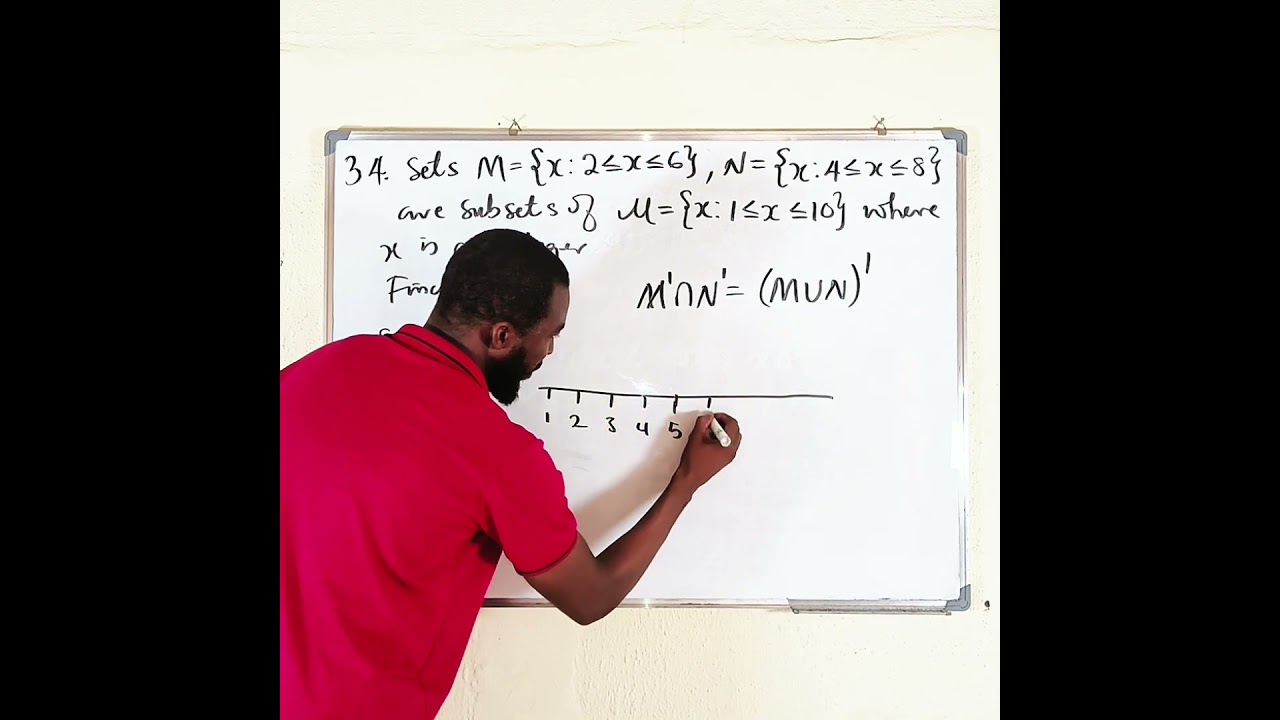 34. Sets M={x: 2≤x≤6}, N={x: 4≤x≤8}
are subsets of μ={x: 1≤x≤10} where
x is
M'∩N'= (M∪N)'
1 2 3 4 5